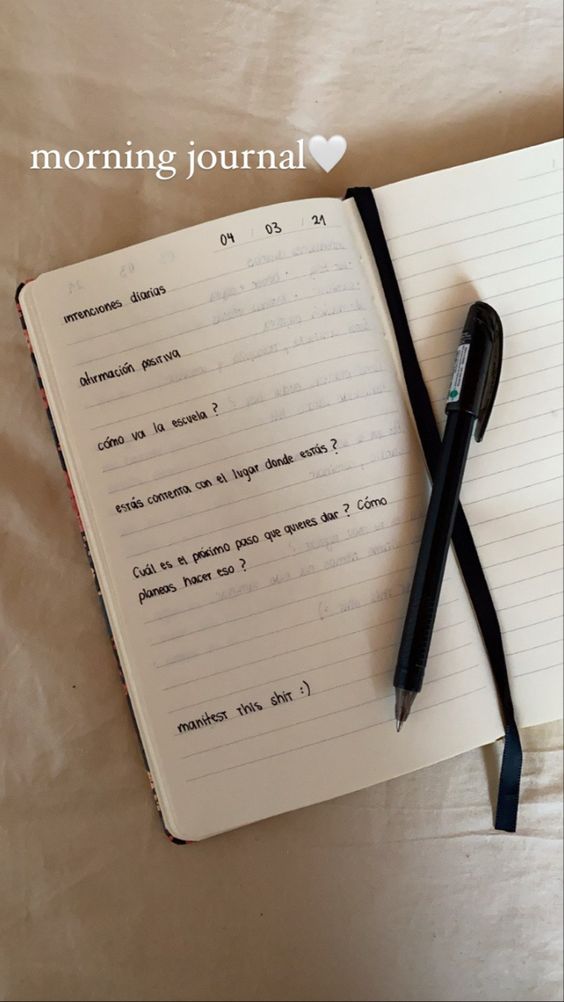 morning journal🤍
04 / 03 / 21
intenciones diarias
afirmación positiva
cómo va la escuela ?
estás contenta con el lugar donde estás ?
Cuál es el próximo paso que quieres dar ? Cómo
planeas hacer eso ?
manifest this shit :)